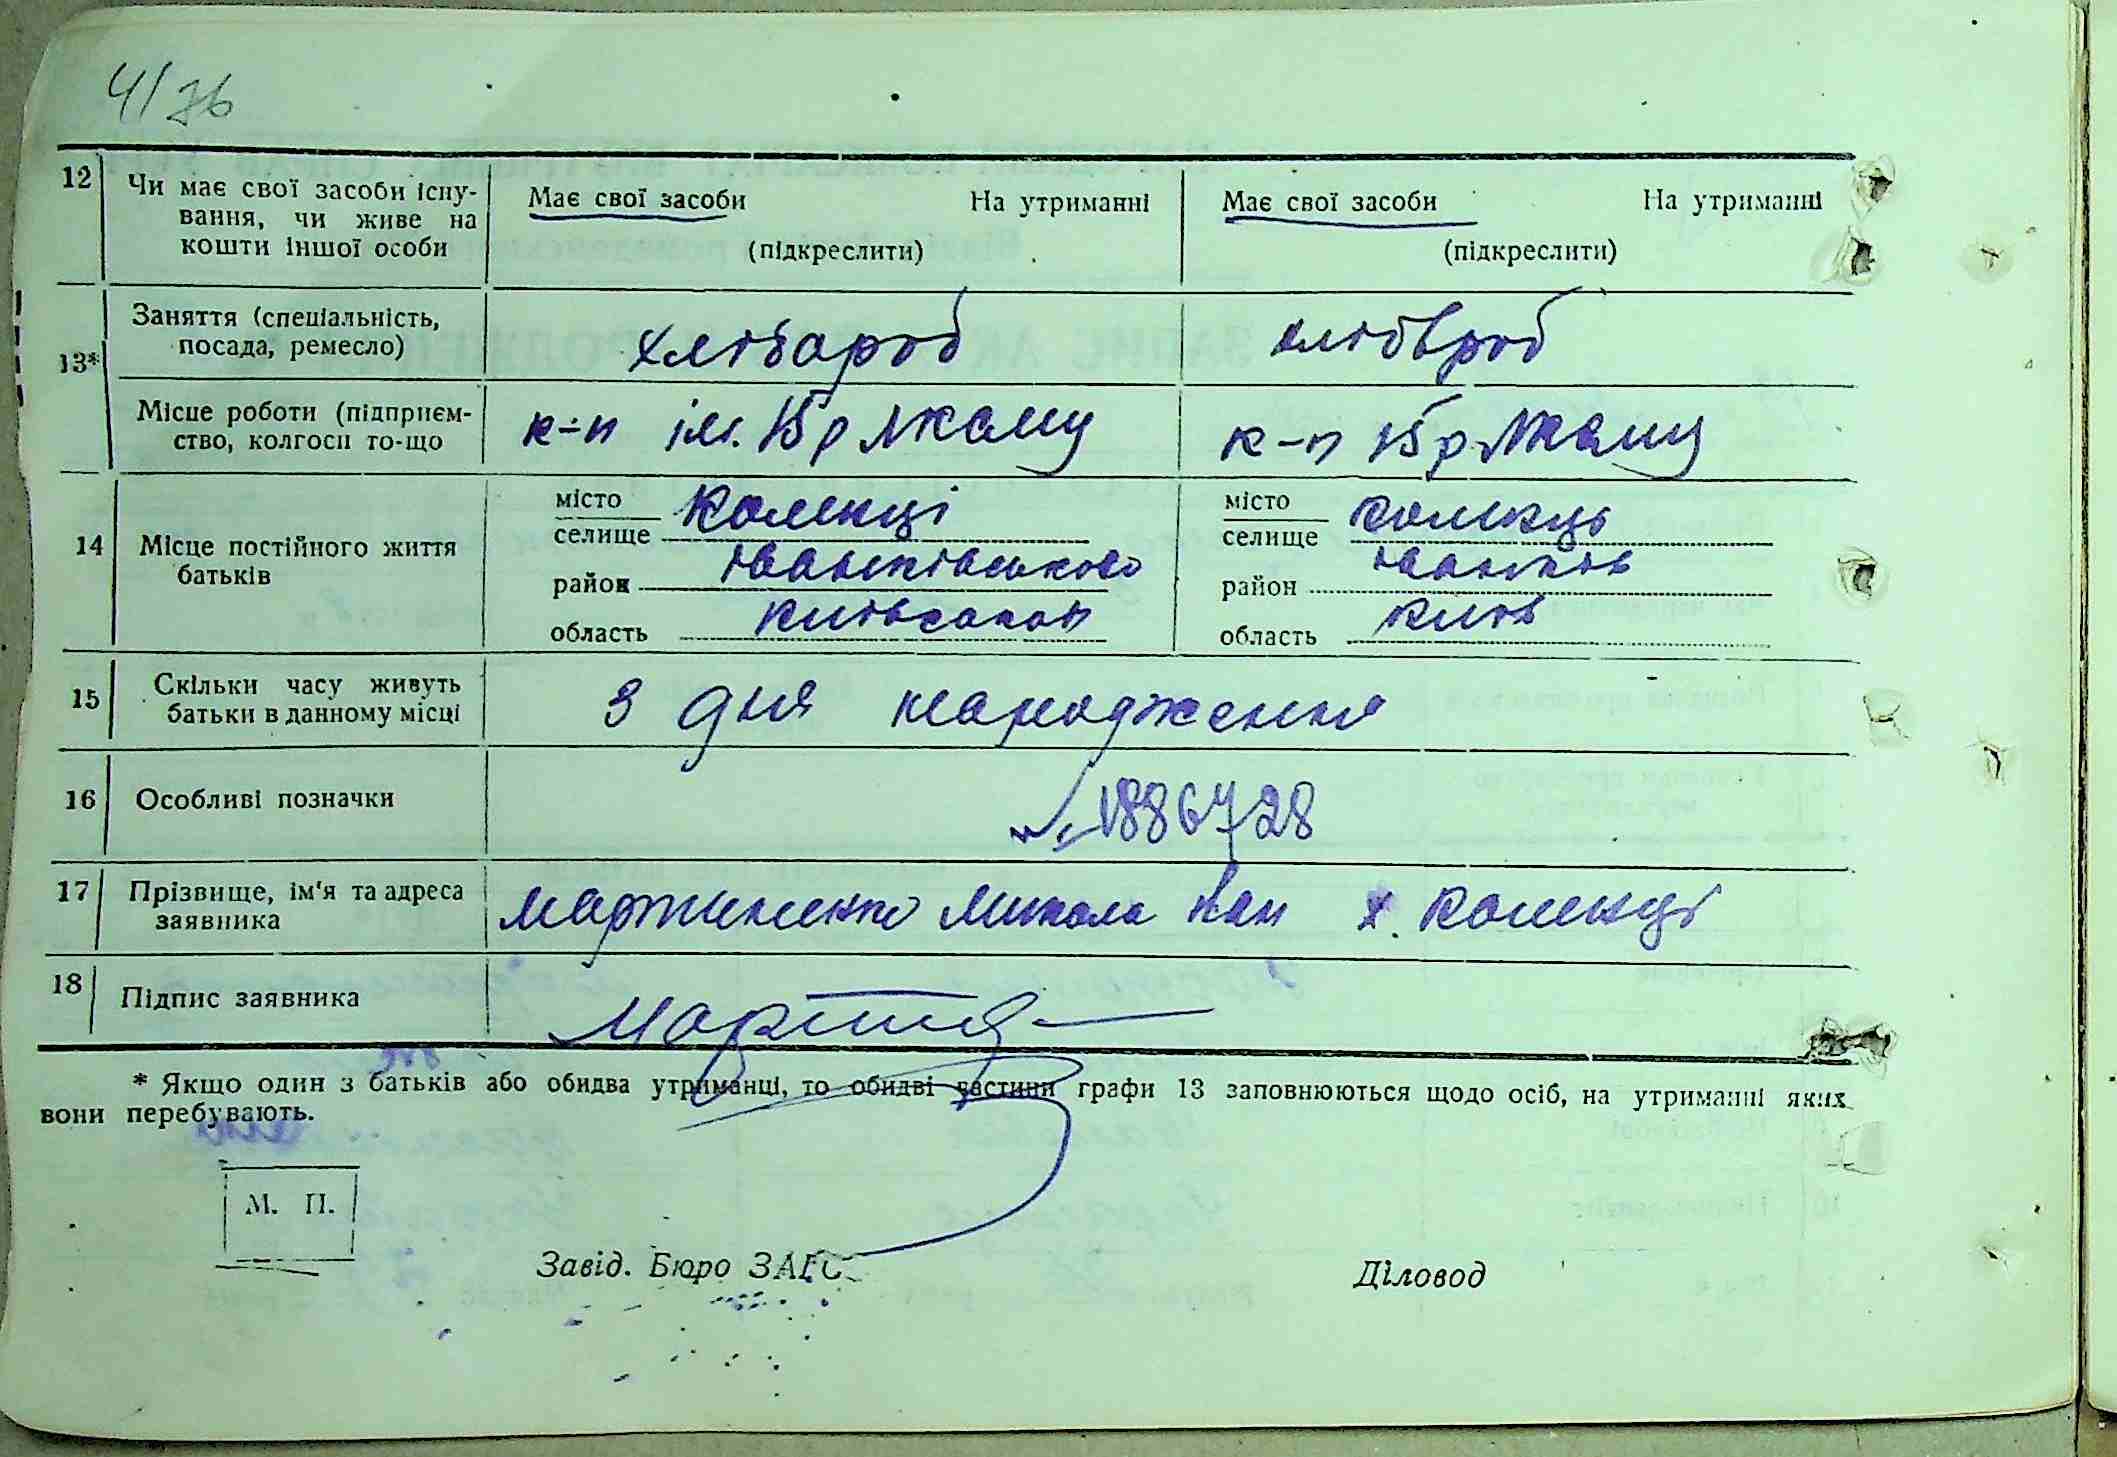 4/76
12 Чи має свої засоби існу- Має свої засоби На утриманні Має свої засоби На утриманні
вання, чи живе на
кошти іншої особи (підкреслити) (підкреслити)
13* Заняття (спеціальність, хлібароб хлібороб
посада, ремесло)
Місце роботи (підприєм- к-п ім. к-п
ство, колгосп то-що
14 Місце постійного життя
батьків
місто Каленці місто Каленць
селище селище
район Іванківського район Іванків
область Київсакой область Київ
15 Скільки часу живуть З дня народження
батьки в данному місці
16 Особливі позначки № 1886728
17 Прізвище, ім'я та адреса Мартиненко Микола Іван х. Каленці
заявника
18 Підпис заявника
* Якщо один з батьків або обидва утриманці, то обидві частини графи 13 заповнюються щодо осіб, на утриманні яких
вони перебувають.
М. П.
Завід. Бюро ЗАГС Діловод